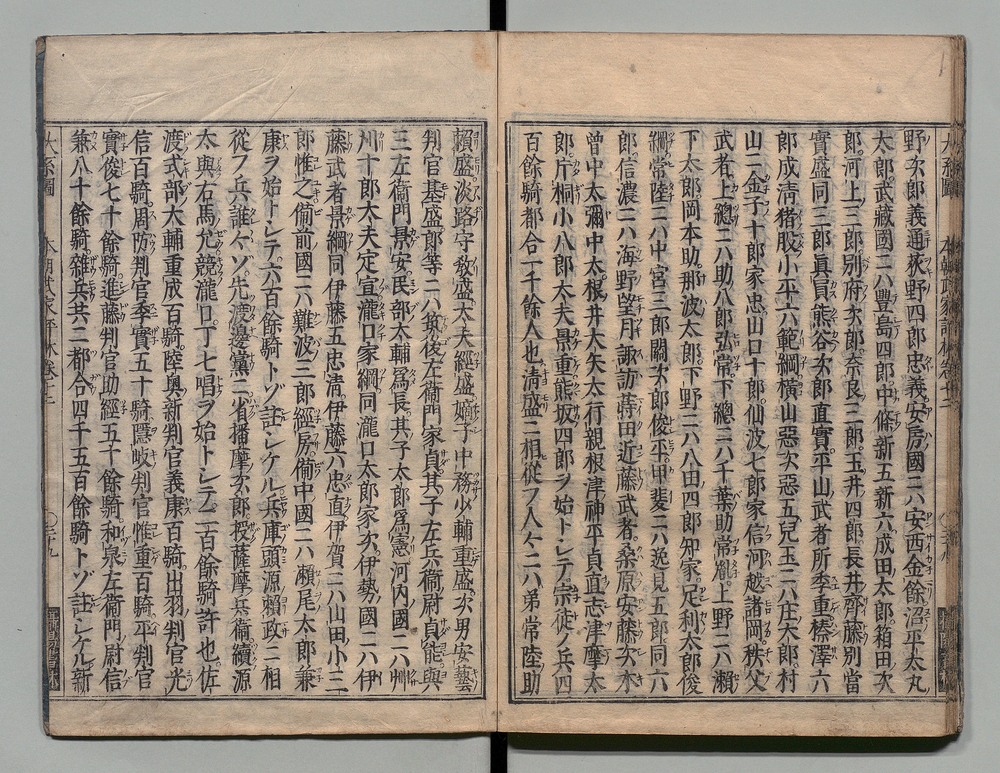 野次郎義通荻野四郎忠義安房國ニハ安西金餘沼平太丸
太郎武藏國ニハ豐島四郎中條新五新六成田太郎箱田次
郎河上三郎別府次郎奈良三郎玉井四郎長井齊藤別當
實盛同三郎眞貟熊谷次郎直實平山武者所季重榛澤六
郎成淸猪股小平六範綱橫山惡次惡五兒玉ニハ庄太郎村
山ニ金子十郎家忠山口十郎仙波七郎家信河越諸岡秩父
武者上總ニハ助八郎弘常下總ニハ千葉助常胤上野ニハ瀨
下太郎岡本助那波太郎下野ニハ八田四郎知家足利太郎俊
綱常陸ニハ中宮三郎關次郎俊平甲斐ニハ逸見五郎同六
郎信濃ニハ海野望月諏訪蒔田近藤武者桑原安藤次木
曾中太彌中太根井大矢太行親根津神平貞直志津摩太
郎片桐小八郎大夫景重熊坂四郎ヲ始トシテ宗徒ノ兵四
百餘騎都合一千餘人也淸盛ニ相從フ人々ニハ弟常陸助
賴盛淡路守敎盛大夫經盛嫡子中務少輔重盛次男安藝
判官基盛郎等ニハ筑後左衞門家貞其子左兵衞尉貞能與
三左衞門景安民部太輔爲長其子太郎爲憲河内國ニハ艸
川十郎大夫定宣瀧口家綱同瀧口太郎家次伊勢國ニハ伊
藤武者景綱同伊藤五忠淸伊藤六忠直伊賀ニハ山田小三
郎惟之備前國ニハ難波三郎經房備中國ニハ瀨尾太郎兼
康ヲ始トシテ六百餘騎トゾ註シケル兵庫頭源賴政ニ相
從フ兵誰々ソ先渡邊黨ニ省播摩次郎授薩摩兵衞續源
太與右馬允競瀧口丁七唱ヲ始トシテ二百餘騎許也佐
渡式部大輔重成百騎陸奧新判官義康百騎出羽判官光
信百騎周防判官季實五十騎隱岐判官惟重百騎平判官
實俊七十餘騎進藤判官助經五十餘騎和泉左衞門尉信
兼八十餘騎雜兵共ニ都合四千五百餘騎トゾ註シケル新